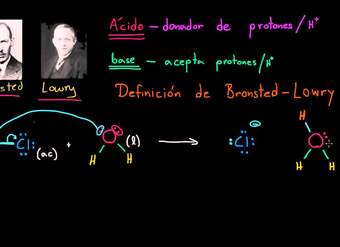 Ácido - donador de protones/H⁺
base - acepta protones/H⁺
sted Lowry
Definición de Bronsted-Lowry
H
Cl (ac) + O (l) → Cl⁻ O
H H H H